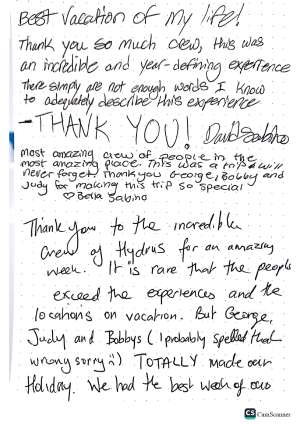 Best vacation of my life!
Thank you so much crew, this was
an incredible and year-defining experience
There simply are not enough words I know
to adequately describe this experience
- THANK YOU! David Sabino
most amazing crew of people in the
most amazing place. This was a trip I will
never forget! Thank you George, Bobby and
Judy for making this trip so special
♡ Bella Sabino
Thank you to the incredible
crew of Hydrus for an amazing
week. It is rare that the people
exceed the experiences and the
locations on vacation. But George,
Judy and Bobbys (I probably spelled that
wrong sorry :)) TOTALLY made our
Holiday. We had the best week of our
CS CamScanner